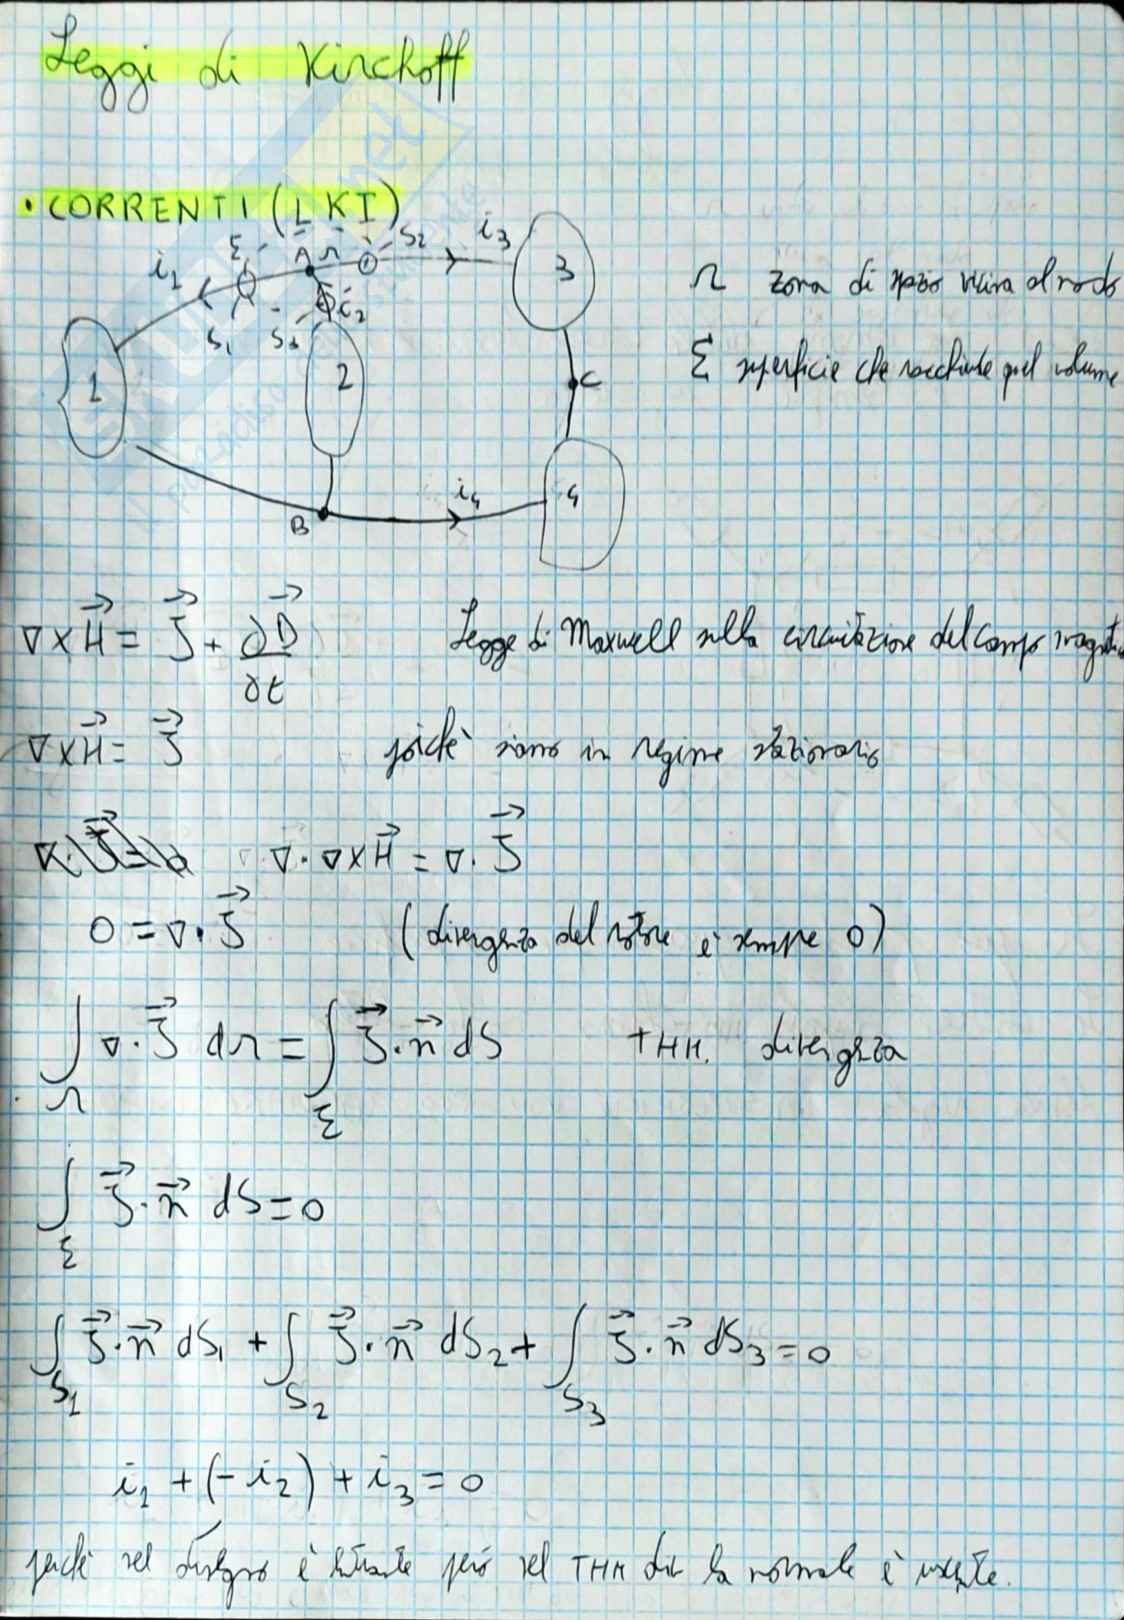 Leggi di Kirchoff
• CORRENTI (LKI)
Σ A Ω S₂ i₃
i₁ 3
S₁ S₃ i₂
1 2 C
i₄ 4
B
Ω zona di spazio vicina al nodo
Σ superficie che racchiude quel volume
∇×H⃗ = J⃗ + ∂D⃗/∂t Legge di Maxwell sulla circuitazione del campo
∇×H⃗ = J⃗ poichè siamo in regime stazionario
∇·∇×H⃗ = ∇·J⃗
0 = ∇·J⃗ (divergenza del rotore è sempre 0)
∫_Ω ∇·J⃗ dΩ = ∫_Σ J⃗·n⃗ dS THM. divergenza
∫_Σ J⃗·n⃗ dS = 0
∫_S₁ J⃗·n⃗ dS₁ + ∫_S₂ J⃗·n⃗ dS₂ + ∫_S₃ J⃗·n⃗ dS₃ = 0
i₁ + (-i₂) + i₃ = 0
perchè nel disegno è entrante però nel THM div la normale è uscente.